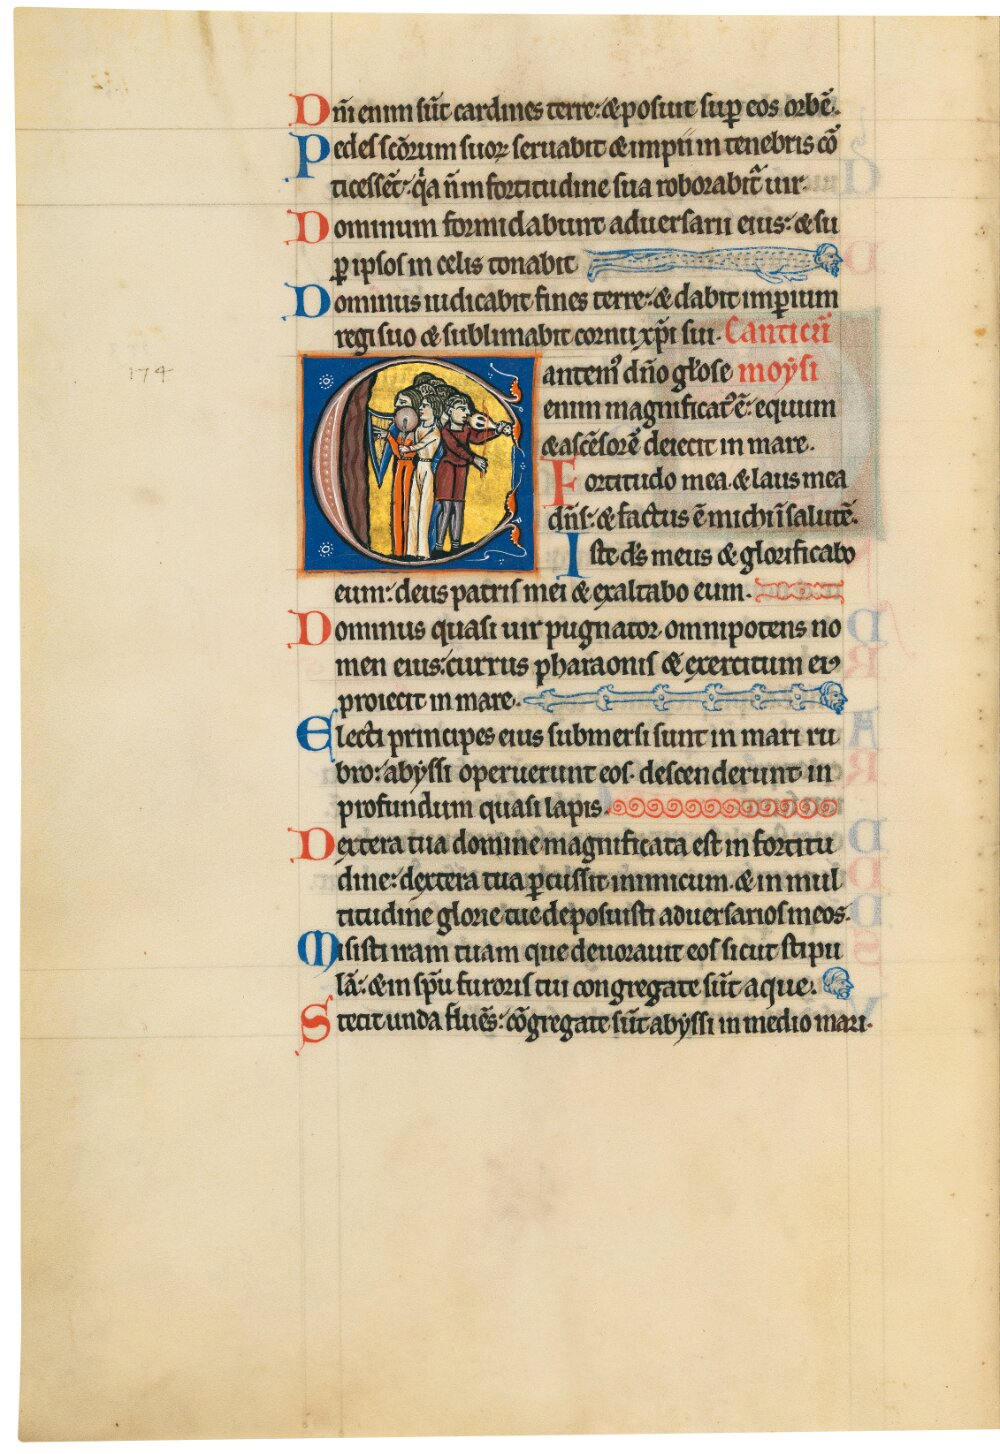 Dñi enim sũt cardines terre: & posuit sup̱ eos orbẽ.
Pedes scõrum suoꝝ seruabit & impii in tenebris cõ
ticescẽt: qͥa ñ in fortitudine sua roborabit̃ uir.
Dominum formidabunt aduersarii eius: & su
p̱ ipsos in celis tonabit
Dominus iudicabit fines terre: & dabit imp̱ium
regi suo & sublimabit cornu xp̃i sui. Canticũ
Cantemꝰ dño gl̃ose moẏsi
enim magnificatꝰ ẽ: equum
& ascẽsorẽ deiecit in mare.
Fortitudo mea & laus mea
dñs: & factus ẽ michi ĩ salutẽ.
Iste d̃s meus & glorificabo
eum: deus patris mei & exaltabo eum.
Dominus quasi uir pugnator. omnipotens no
men eius: currus pharaonis & exercitum eiꝰ
proiecit in mare.
Electi principes eius submersi sunt in mari ru
bro: abẏssi operuerunt eos. descenderunt in
profundum quasi lapis.
Dextera tua domine magnificata est in fortitu
dine: dextera tua p̱cussit inimicum. & in mul
titudine glorie tue deposuisti aduersarios meos.
Misisti iram tuam que deuorauit eos sicut stipu
lã: & in sp̃u furoris tui congregate sũt aque.
Stetit unda fluẽs: cõgregate sũt abẏssi in medio mari.
174